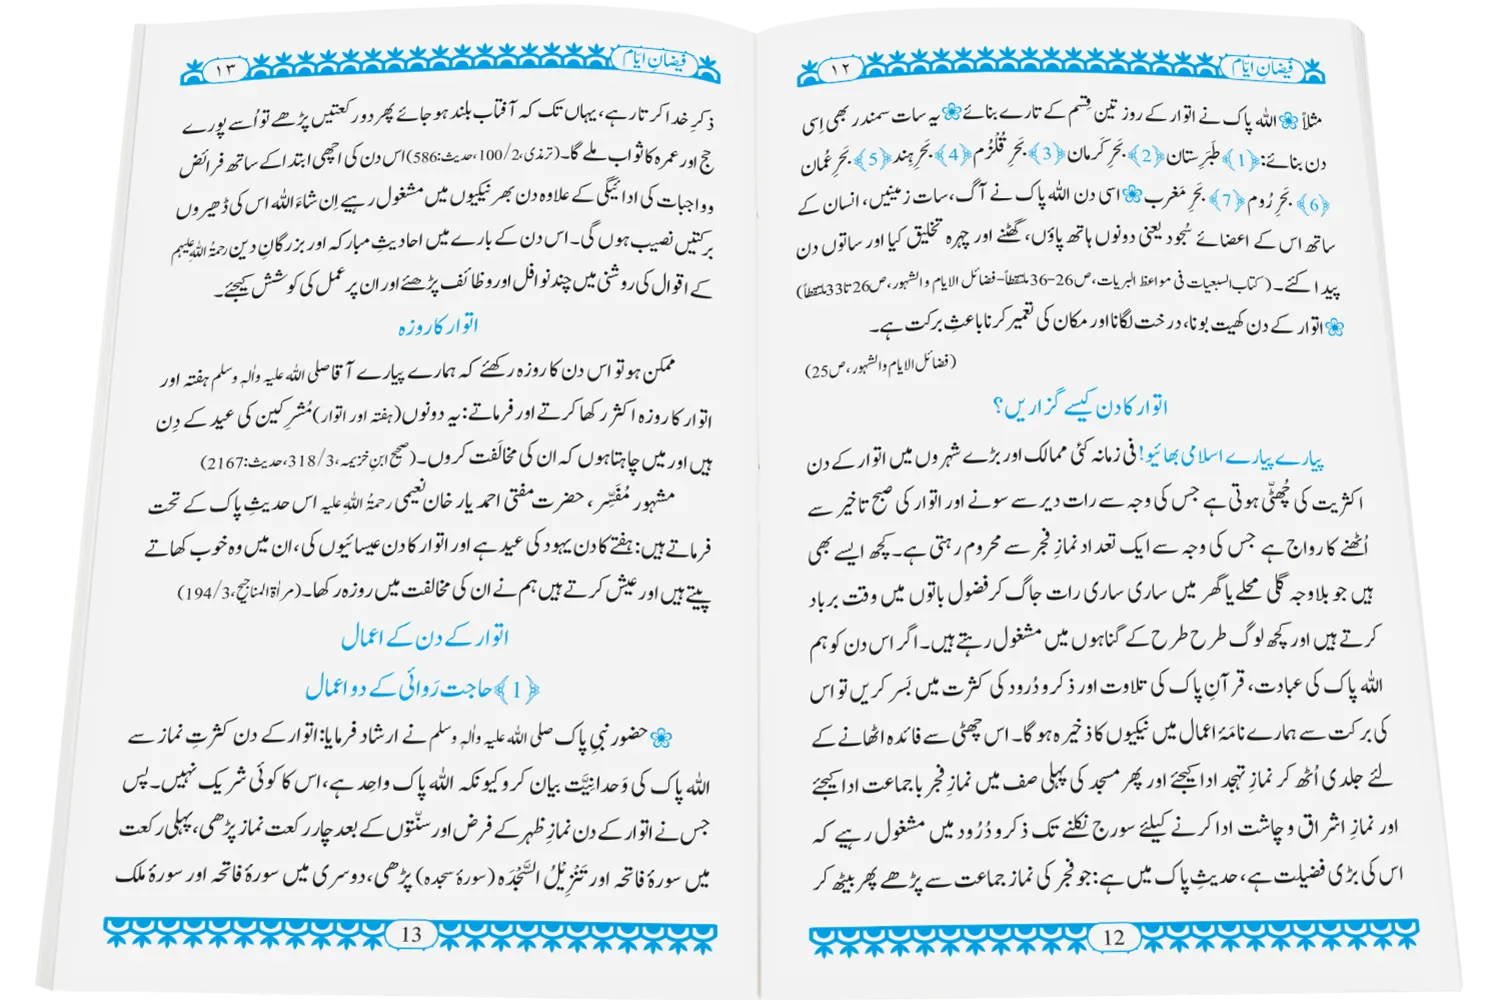 فیضانِ ایّام
۱۲
مثلاً اللہ پاک نے اتوار کے روز تین قسم کے تارے بنائے یہ سات سمندر بھی اِسی
دن بنائے: ﴿1﴾ طَبَرِستان ﴿2﴾ بحرِ کَرمان ﴿3﴾ بحرِ قُلْزُم ﴿4﴾ بحرِ ہِند ﴿5﴾ بحرِ عُمان
﴿6﴾ بحرِ رُوم ﴿7﴾ بحرِ مَغرب اسی دن اللہ پاک نے آگ، سات زمینیں، انسان کے
ساتھ اس کے اعضائے سُجود یعنی دونوں ہاتھ پاؤں، گھٹنے اور چہرہ تخلیق کیا اور ساتوں دن
پیدا کئے۔ (کتاب السبعیات فی مواعظ البریات، ص26-36 ملتقطاً-فضائل الایام والشہور، ص26 تا 33 ملتقطاً)
اتوار کے دن کھیت بونا، درخت لگانا اور مکان کی تعمیر کرنا باعثِ برکت ہے۔
(فضائل الایام والشہور، ص25)
اتوار کا دن کیسے گزاریں؟
پیارے پیارے اسلامی بھائیو! فی زمانہ کئی ممالک اور بڑے شہروں میں اتوار کے دن
اکثریت کی چُھٹّی ہوتی ہے جس کی وجہ سے رات دیر سے سونے اور اتوار کی صبح تاخیر سے
اُٹھنے کا رواج ہے جس کی وجہ سے ایک تعداد نمازِ فجر سے محروم رہتی ہے۔ کچھ ایسے بھی
ہیں جو بلاوجہ گلی محلے یا گھر میں ساری ساری رات جاگ کر فضول باتوں میں وقت برباد
کرتے ہیں اور کچھ لوگ طرح طرح کے گناہوں میں مشغول رہتے ہیں۔ اگر اس دن کو ہم
اللہ پاک کی عبادت، قرآنِ پاک کی تلاوت اور ذکر و دُرود کی کثرت میں بَسر کریں تو اس
کی برکت سے ہمارے نامَۂ اعمال میں نیکیوں کا ذخیرہ ہوگا۔ اس چھٹی سے فائدہ اٹھانے کے
لئے جلدی اُٹھ کر نمازِ تہجد ادا کیجئے اور پھر مسجد کی پہلی صف میں نمازِ فجر باجماعت ادا کیجئے
اور نمازِ اشراق و چاشت ادا کرنے کیلئے سورج نکلنے تک ذکر و دُرُود میں مشغول رہیے کہ
اس کی بڑی فضیلت ہے، حدیثِ پاک میں ہے: جو فجر کی نماز جماعت سے پڑھے پھر بیٹھ کر
12
فیضانِ ایّام
۱۳
ذکرِ خدا کرتا رہے، یہاں تک کہ آفتاب بلند ہو جائے پھر دو رکعتیں پڑھے تو اُسے پورے
حج اور عمرہ کا ثواب ملے گا۔ (ترمذی، 2/100، حدیث:586) اس دن کی اچھی ابتدا کے ساتھ فرائض
و واجبات کی ادائیگی کے علاوہ دن بھر نیکیوں میں مشغول رہیے اِن شاءَ اللہ اس کی ڈھیروں
برکتیں نصیب ہوں گی۔ اس دن کے بارے میں احادیثِ مبارکہ اور بزرگانِ دین رحمۃُ اللہِ علیہم
کے اقوال کی روشنی میں چند نوافل اور وظائف پڑھئے اور ان پر عمل کی کوشش کیجئے۔
اتوار کا روزہ
ممکن ہو تو اس دن کا روزہ رکھئے کہ ہمارے پیارے آقا صلی اللہ علیہ واٰلہٖ وسلم ہفتہ اور
اتوار کا روزہ اکثر رکھا کرتے اور فرماتے: یہ دونوں (ہفتہ اور اتوار) مُشرکین کی عید کے دِن
ہیں اور میں چاہتا ہوں کہ ان کی مخالَفت کروں۔ (صحیح ابنِ خزیمہ، 3/318، حدیث:2167)
مشہور مُفَسِّر، حضرت مفتی احمد یار خان نعیمی رحمۃُ اللہِ علیہ اس حدیثِ پاک کے تحت
فرماتے ہیں: ہفتے کا دن یہود کی عید ہے اور اتوار کا دن عیسائیوں کی، ان میں وہ خوب کھاتے
پیتے ہیں اور عیش کرتے ہیں ہم نے ان کی مخالفت میں روزہ رکھا۔ (مراٰۃ المناجیح، 3/194)
اتوار کے دن کے اعمال
﴿1﴾ حاجت رَوائی کے دو اعمال
حضور نبیِ پاک صلی اللہ علیہ واٰلہٖ وسلم نے ارشاد فرمایا: اتوار کے دن کثرتِ نماز سے
اللہ پاک کی وَحدانِیَّت بیان کرو کیونکہ اللہ پاک واحِد ہے، اس کا کوئی شریک نہیں۔ پس
جس نے اتوار کے دن نمازِ ظہر کے فرض اور سنّتوں کے بعد چار رکعت نماز پڑھی، پہلی رکعت
میں سورۂ فاتحہ اور تَنْزِیْلُ السَّجْدَہ (سورۂ سجدہ) پڑھی، دوسری میں سورۂ فاتحہ اور سورۂ ملک
13